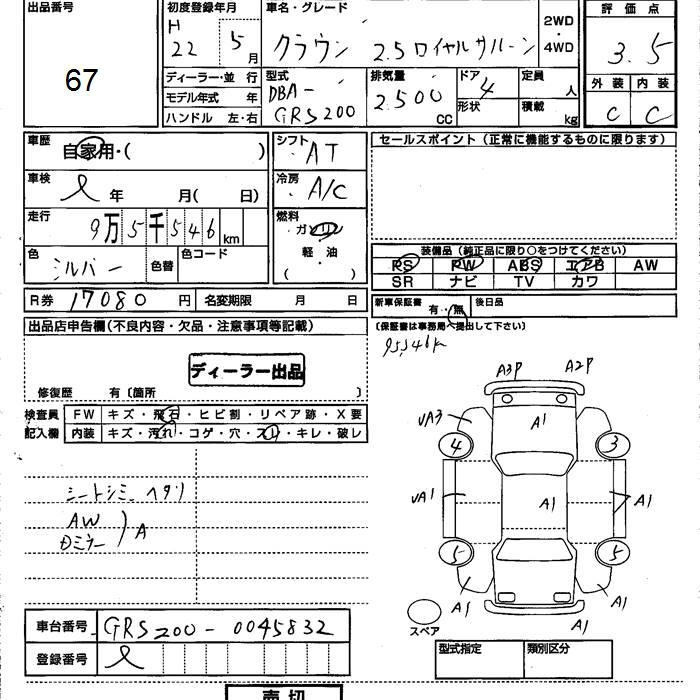 出品番号
67
初度登録年月
H
22 5月
車名・グレード
クラウン 2.5 ロイヤルサルーン
2WD
・
4WD
評価点
3.5
ディーラー・並 行
モデル年式 年
ハンドル 左・右
型式
DBA-
GRS200
排気量
2500
CC
ドア 4
形状
定員 人
積載 kg
外装 内装
C C
車歴
自家用・( )
シフト
AT
セールスポイント (正常に機能するものに限ります)
車検
年 月( 日)
冷房
A/C
走行
9万5千546km
燃料
ガソリン
軽油
( ・ )
色
シルバー
色替
色コード
装備品 (純正品に限り○をつけてください)
PS PW ABS エアB AW
SR ナビ TV カワ
R券 17080 円
名変期限 月 日
新車保証書
有・無
後日品
(保証書は事務局へ提出して下さい)
95,546K
出品店申告欄(不良内容・欠品・注意事項等記載)
ディーラー出品
修復歴 有〔箇所 〕
検査員
記入欄
FW キズ・飛石・ヒビ割・リペア跡・X要
内装 キズ・汚れ・コゲ・穴・スレ・キレ・破レ
シートシミ ヘタリ
AW
Dミラー
A
A3P A2P
UA3 A1
4 3
UA1 A1 A1
5 5
A1 A1
スペア
車台番号 GRS200-0045832
登録番号
型式指定 類別区分
売切